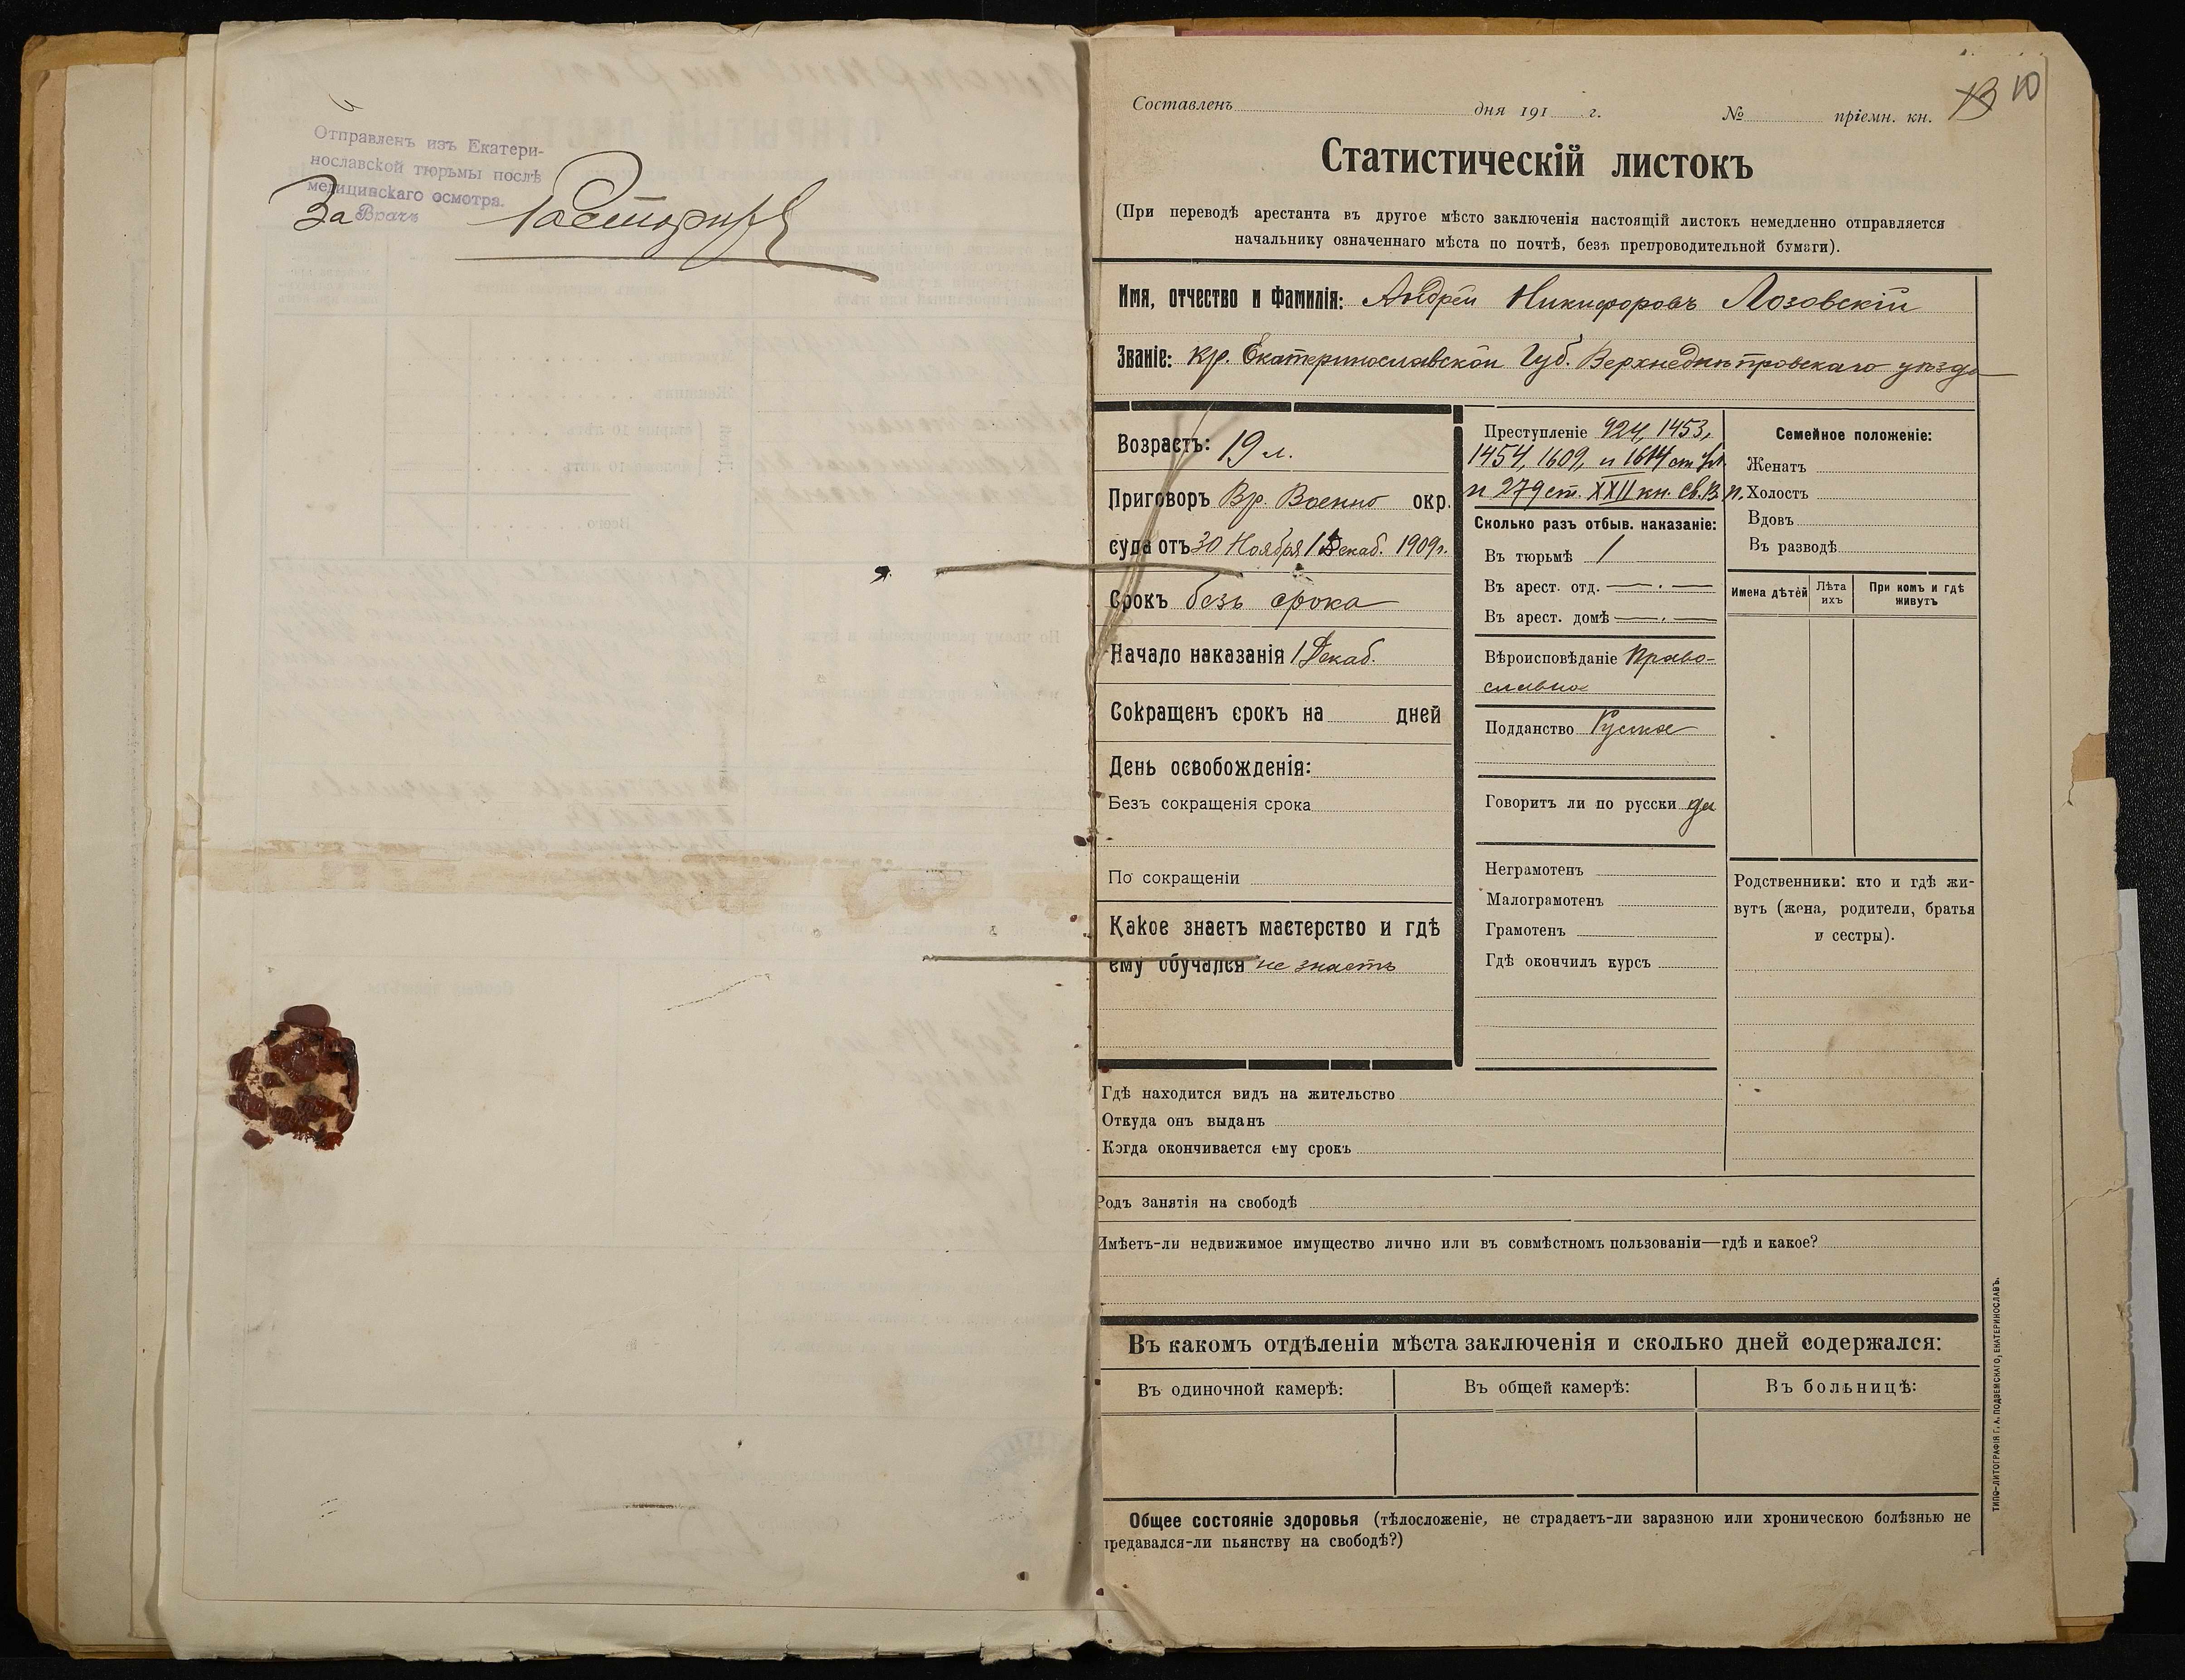 Отправленъ изъ Екатери-
нославской тюрьмы послѣ
медицинскаго осмотра.
За Врачъ
Составленъ дня 191 г. № пріемн. кн. 13 10
Статистическій листокъ
(При переводѣ арестанта въ другое мѣсто заключенія настоящій листокъ немедленно отправляется
начальнику означеннаго мѣста по почтѣ, безъ препроводительной бумаги).
Имя, отчество и фамилія: Андрей Никифоровъ Лозовскій
Званіе: Кр. Екатеринославской Губ. Верхнеднѣпровскаго уѣзда
Возрастъ: 19 л.
Приговоръ Вр. Военно окр.
суда отъ 30 Ноября 1 Декаб. 1909 г.
Срокъ безъ срока
Начало наказанія 1 Декаб.
Сокращенъ срокъ на дней
День освобожденія:
Безъ сокращенія срока
По сокращеніи
Какое знаетъ мастерство и гдѣ
ему обучался не знаетъ
Преступленіе 924, 1453,
1454, 1609, и 1614 ст. Ул.
и 279 ст. XXII кн. Св. В. П.
Сколько разъ отбыв. наказаніе:
Въ тюрьмѣ 1
Въ арест. отд. — . —
Въ арест. домѣ — . —
Вѣроисповѣданіе Право-
славное
Подданство Русское
Говоритъ ли по русски да
Неграмотенъ
Малограмотенъ
Грамотенъ
Гдѣ окончилъ курсъ
Семейное положеніе:
Женатъ
Холостъ
Вдовъ
Въ разводѣ
Имена дѣтей Лѣта ихъ При комъ и гдѣ живутъ
Родственники: кто и гдѣ жи-
вутъ (жена, родители, братья
и сестры).
Гдѣ находится видъ на жительство
Откуда онъ выданъ
Когда окончивается ему срокъ
Родъ занятія на свободѣ
Имѣетъ-ли недвижимое имущество лично или въ совмѣстномъ пользованіи—гдѣ и какое?
Въ какомъ отдѣленіи мѣста заключенія и сколько дней содержался:
Въ одиночной камерѣ: Въ общей камерѣ: Въ больницѣ:
Общее состояніе здоровья (тѣлосложеніе, не страдаетъ-ли заразною или хроническою болѣзнью не
предавался-ли пьянству на свободѣ?)
ТИПО-ЛИТОГРАФІЯ Г. А. ПОДЗЕМСКАГО, ЕКАТЕРИНОСЛАВЪ.